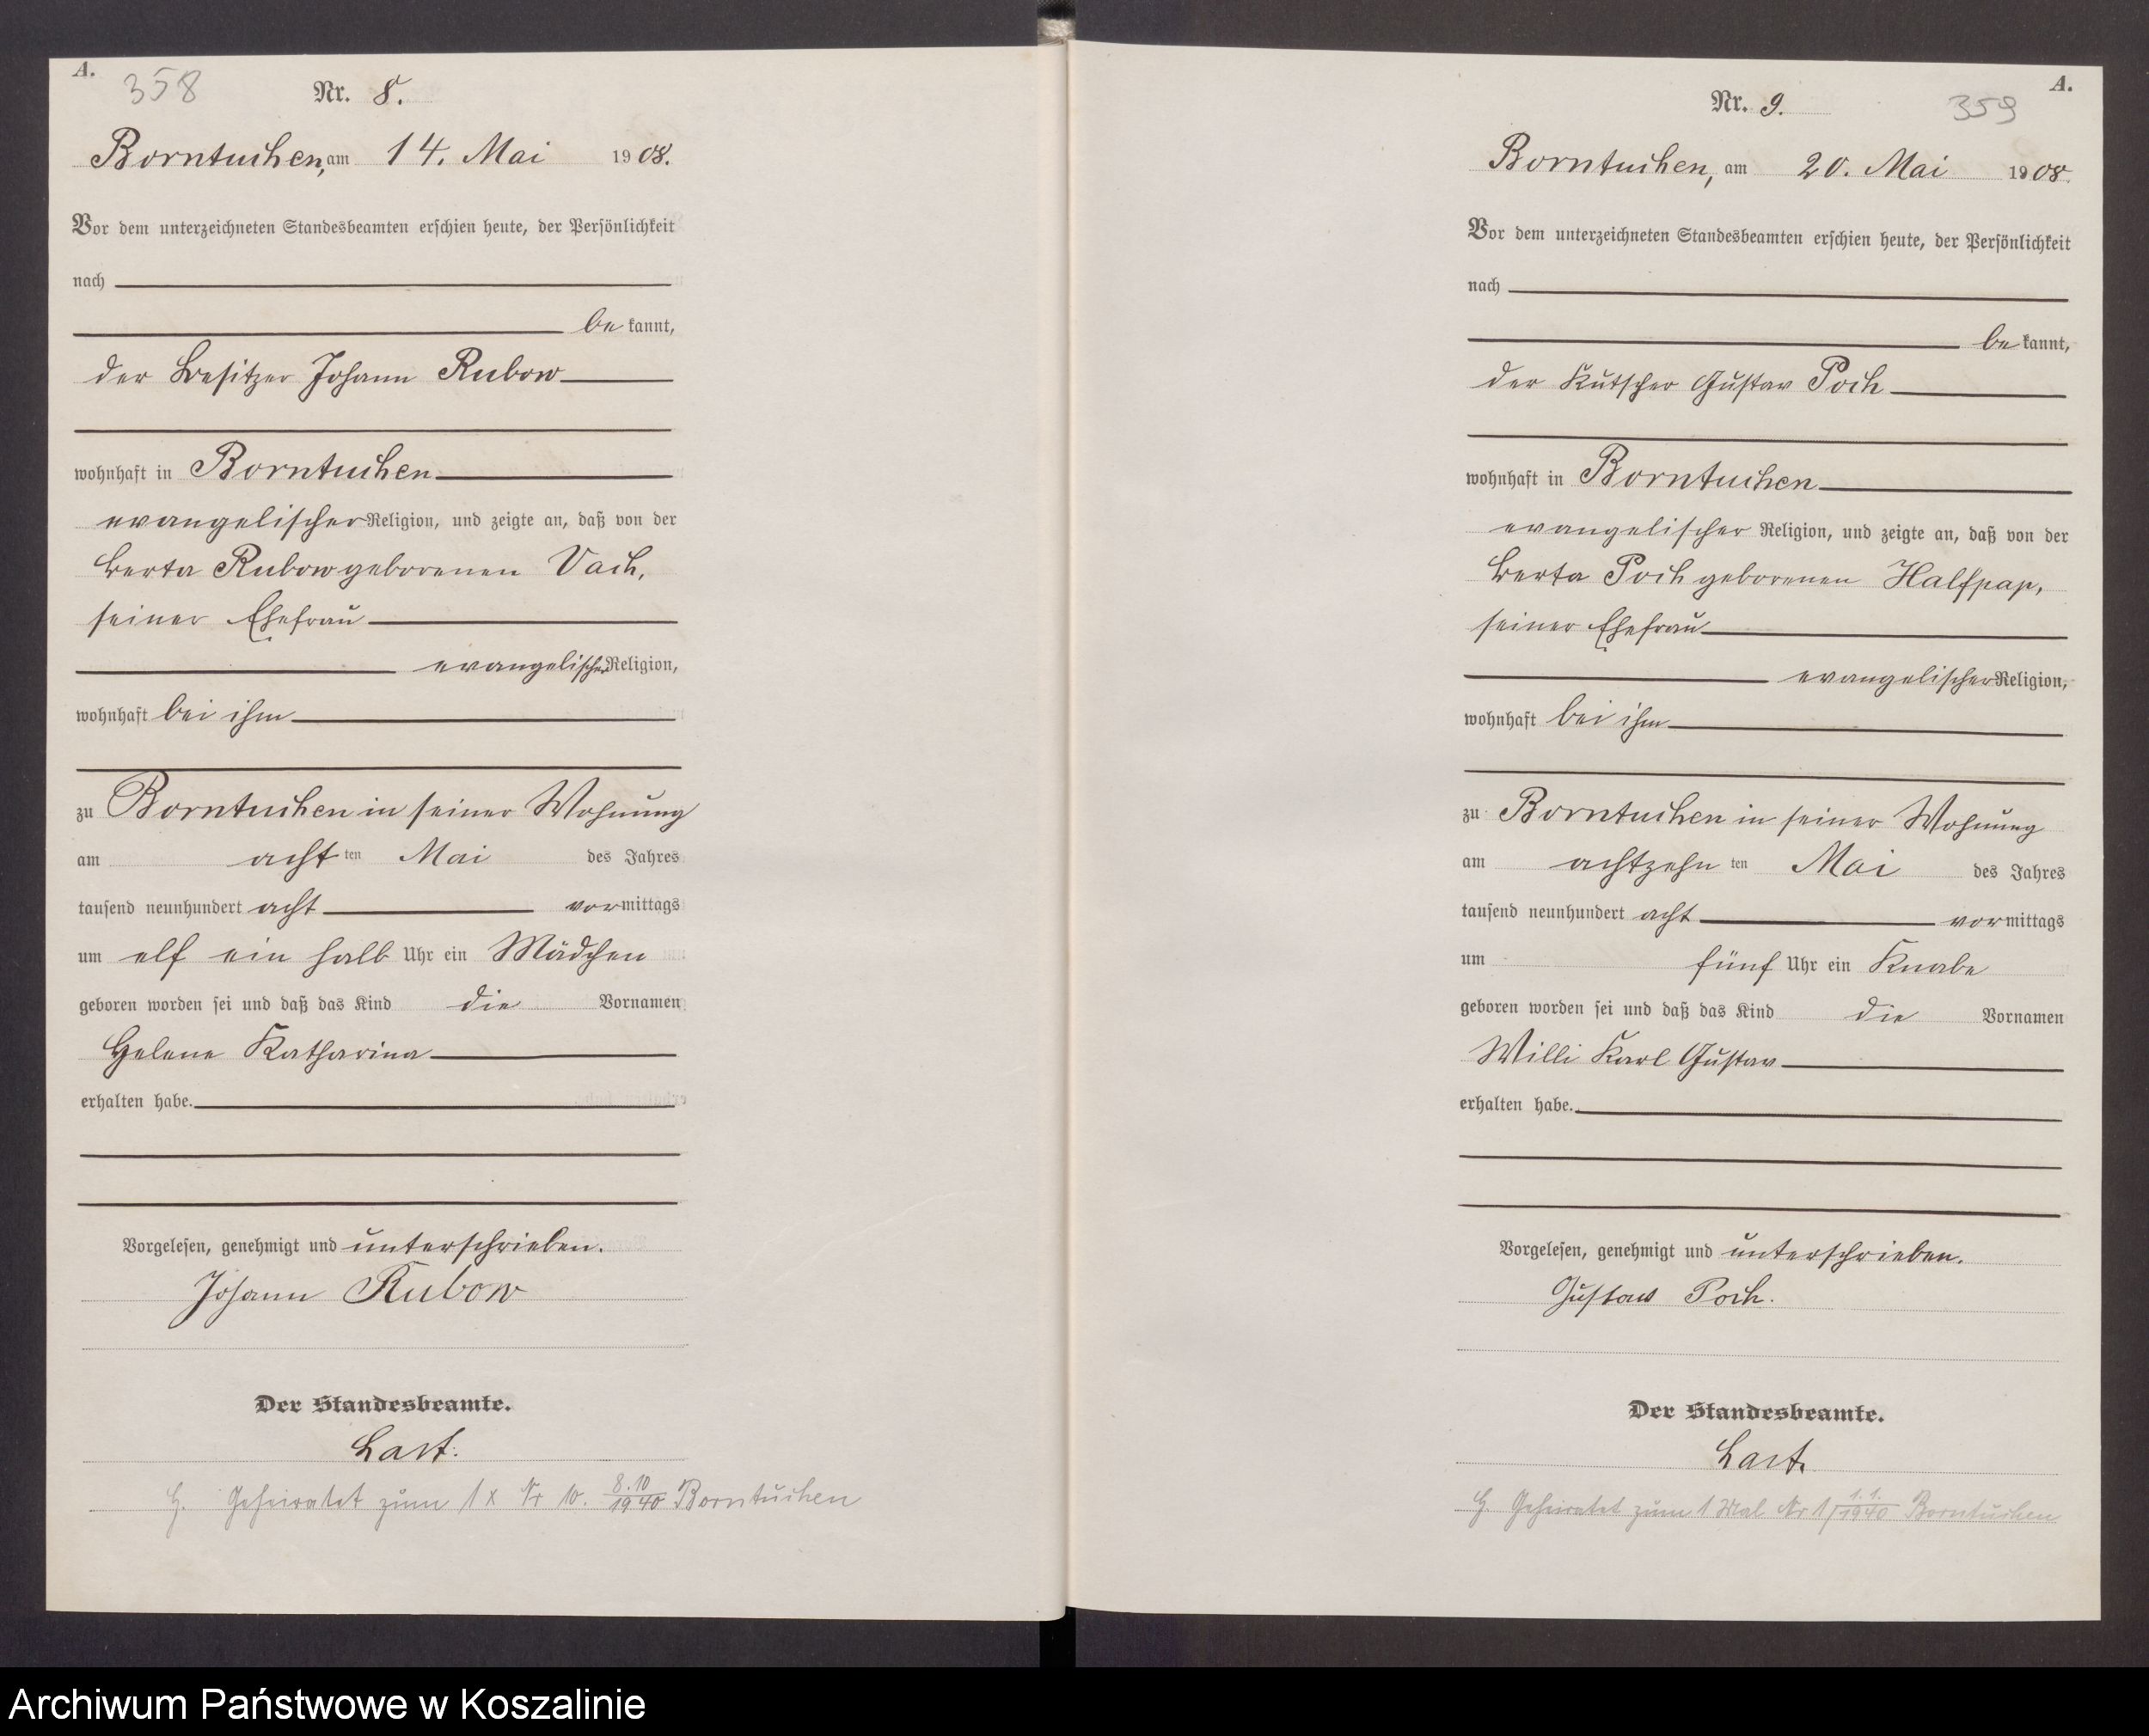 A.
358
Nr. 8.
Borntuchen, am 14. Mai 1908.
Vor dem unterzeichneten Standesbeamten erschien heute, der Persönlichkeit
nach
be kannt,
der Besitzer Johann Rubow
wohnhaft in Borntuchen
evangelischer Religion, und zeigte an, daß von der
Berta Rubow geborenen Vach,
seiner Ehefrau
evangelischer Religion,
wohnhaft bei ihm
zu Borntuchen in seiner Wohnung
am acht ten Mai des Jahres
tausend neunhundert acht vormittags
um elf ein halb Uhr ein Mädchen
geboren worden sei und daß das Kind die Vornamen
Helene Katharina
erhalten habe.
Vorgelesen, genehmigt und unterschrieben.
Johann Rubow
Der Standesbeamte.
Last.
H. Geheiratet zum 1 x Nr 10. 8.10 1940 Borntuchen
A.
359
Nr. 9.
Borntuchen, am 20. Mai 1908.
Vor dem unterzeichneten Standesbeamten erschien heute, der Persönlichkeit
nach
be kannt,
der Kutscher Gustav Poch
wohnhaft in Borntuchen
evangelischer Religion, und zeigte an, daß von der
Berta Poch geborenen Halfpap,
seiner Ehefrau
evangelischer Religion,
wohnhaft bei ihm
zu Borntuchen in seiner Wohnung
am achtzehn ten Mai des Jahres
tausend neunhundert acht vormittags
um fünf Uhr ein Knabe
geboren worden sei und daß das Kind die Vornamen
Willi Karl Gustav
erhalten habe.
Vorgelesen, genehmigt und unterschrieben.
Gustav Poch.
Der Standesbeamte.
Last.
H Geheiratet zum 1 Mal Nr 1/ 1.1. 1940 Borntuchen
Archiwum Państwowe w Koszalinie